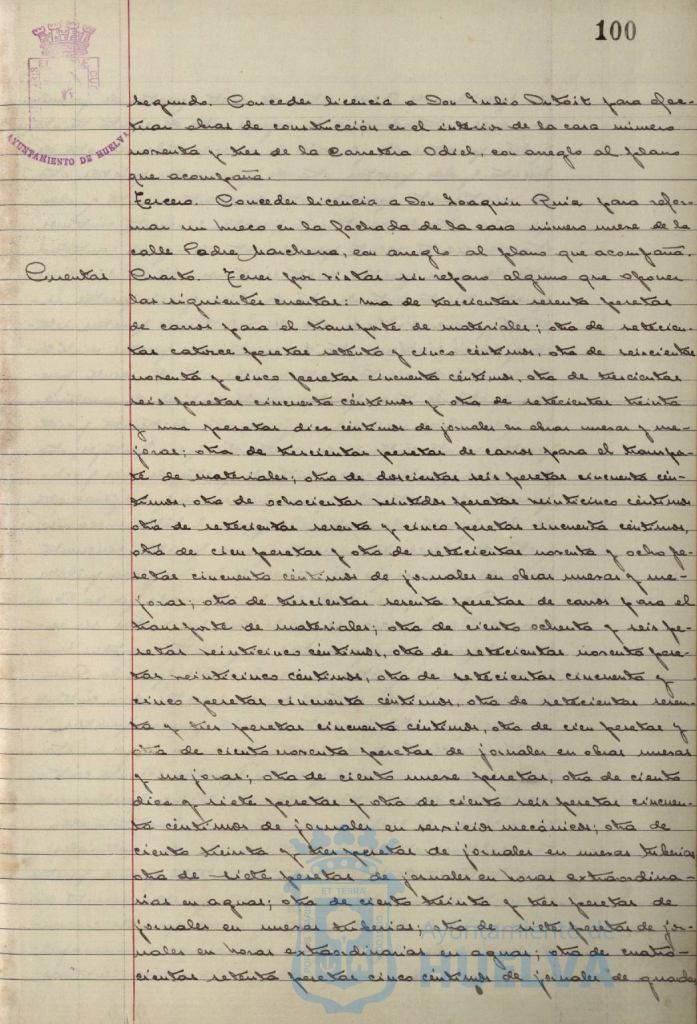 100
AYUNTAMIENTO DE HUELVA
segundo. Conceder licencia a Don Julio Dutoit para efec-
tuar obras de construcción en el interior de la casa número
noventa y tres de la Carretera Odiel, con arreglo al plano
que acompaña.
Tercero. Conceder licencia a Don Joaquin Ruiz para refor-
mar un hueco en la fachada de la casa número nueve de la
calle Padre Marchena, con arreglo al plano que acompaña.
Cuentas
Cuarto. Tener por vistas sin reparo alguno que oponer
las siguientes cuentas: una de trescientas sesenta pesetas
de carros para el transporte de materiales; otra de setecien-
tas catorce pesetas setenta y cinco céntimos, otra de seiscientas
noventa y cinco pesetas cincuenta céntimos, otra de trescientas
seis pesetas cincuenta céntimos y otra de setecientas treinta
y una pesetas diez céntimos de jornales en obras nuevas y me-
joras; otra de trescientas pesetas de carros para el transpor-
te de materiales; otra de doscientas seis pesetas cincuenta cén-
timos, otra de ochocientas veintidos pesetas veinticinco céntimos
otra de setecientas sesenta y cinco pesetas cincuenta céntimos,
otra de cien pesetas y otra de setecientas noventa y ocho pe-
setas cincuenta céntimos de jornales en obras nuevas y me-
joras; otra de trescientas sesenta pesetas de carros para el
transporte de materiales; otra de ciento ochenta y seis pe-
setas veinticinco céntimos, otra de setecientas noventa pese-
tas veinticinco céntimos, otra de setecientas cincuenta y
cinco pesetas cincuenta céntimos, otra de setecientas
y tres pesetas cincuenta céntimos, otra de cien pesetas y
otra de ciento noventa pesetas de jornales en obras nuevas
y mejoras; otra de ciento nueve pesetas, otra de ciento
diez y siete pesetas y otra de ciento seis pesetas cincuen-
ta céntimos de jornales en servicios mecánicos; otra de
ciento treinta y tres pesetas de jornales en nuevas tuberias
otra de siete pesetas de jornales en horas extraordina-
rias en aguas; otra de ciento treinta y tres pesetas de
jornales en nuevas tuberias; otra de siete pesetas de jor-
nales en horas extraordinarias en aguas; otra de cuatro-
cientas setenta pesetas cinco céntimos de jornales de guardas
Ayuntamiento de
HUELVA